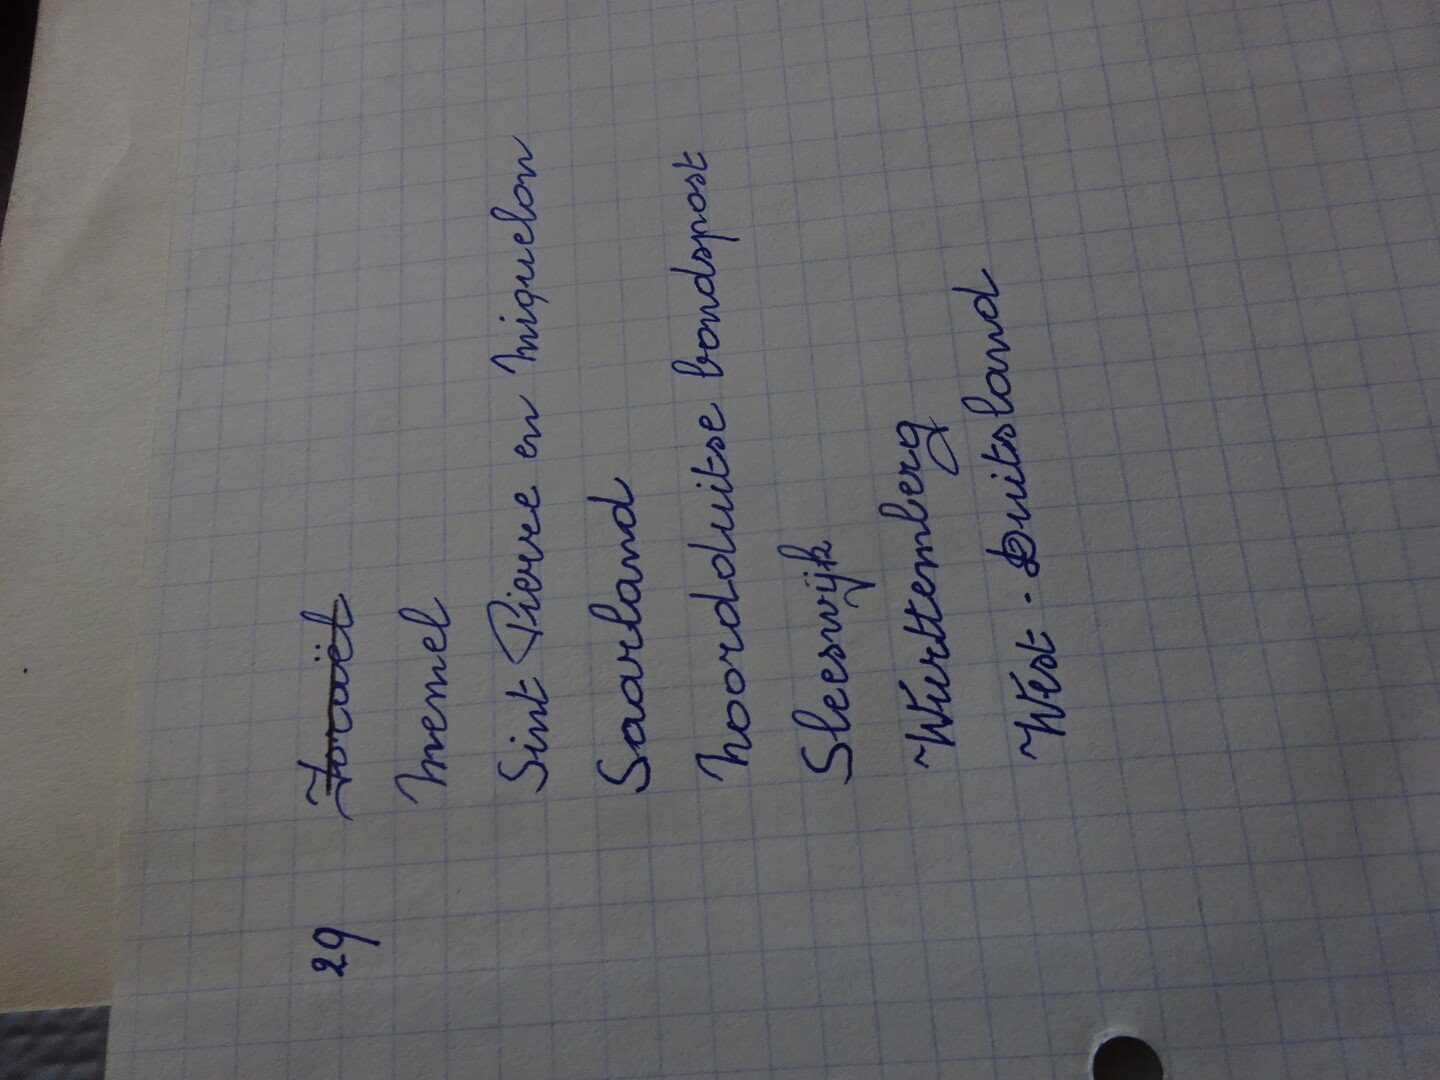 29 Israël
Memel
Sint Pierre en Miquelon
Saarland
Noordduitse bondspost
Sleeswijk
Wurttemberg
West-Duitsland